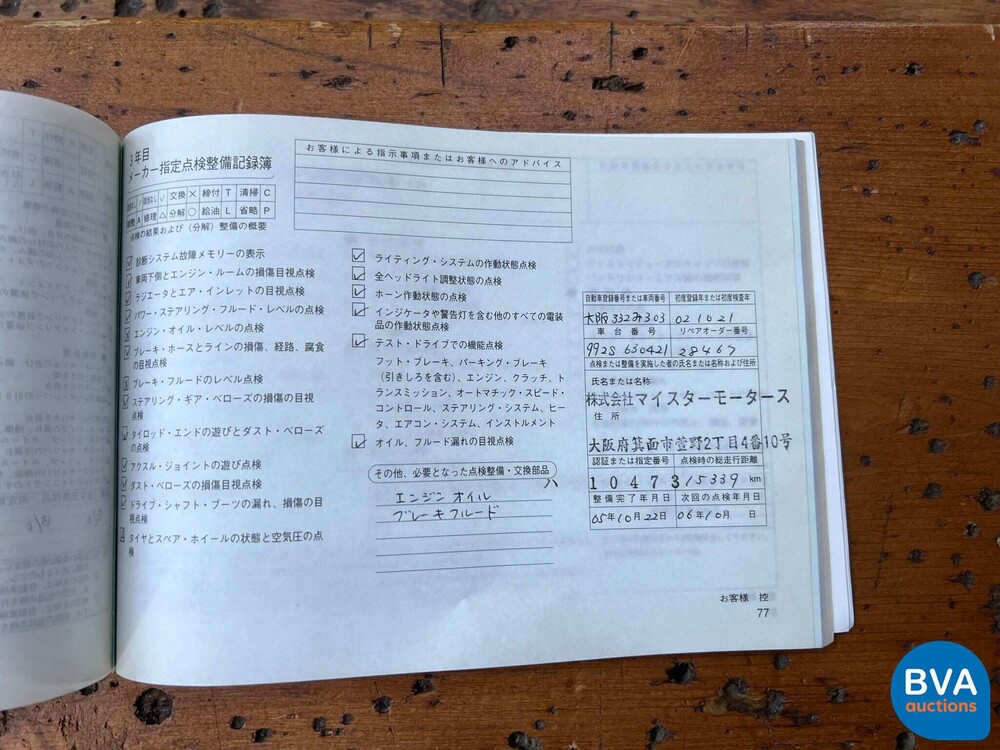 3年目
メーカー指定点検整備記録簿
交換 × 締付 T 清掃 C
調整 A 修理 △ 分解 ○ 給油 L 省略 P
点検の結果および（分解）整備の概要
診断システム故障メモリーの表示
車両下側とエンジン・ルームの損傷目視点検
ラジエータとエア・インレットの目視点検
パワー・ステアリング・フルード・レベルの点検
エンジン・オイル・レベルの点検
ブレーキ・ホースとラインの損傷、経路、腐食
の目視点検
ブレーキ・フルードのレベル点検
ステアリング・ギア・ベローズの損傷の目視
点検
タイロッド・エンドの遊びとダスト・ベローズ
の点検
アクスル・ジョイントの遊び点検
ダスト・ベローズの損傷目視点検
ドライブ・シャフト・ブーツの漏れ、損傷の目
視点検
タイヤとスペア・ホイールの状態と空気圧の点
検
お客様による指示事項またはお客様へのアドバイス
ライティング・システムの作動状態点検
全ヘッドライト調整状態の点検
ホーン作動状態の点検
インジケータや警告灯を含む他のすべての電装
品の作動状態点検
テスト・ドライブでの機能点検
フット・ブレーキ、パーキング・ブレーキ
（引きしろを含む）、エンジン、クラッチ、ト
ランスミッション、オートマチック・スピード・
コントロール、ステアリング・システム、ヒー
タ、エアコン・システム、インストルメント
オイル、フルード漏れの目視点検
その他、必要となった点検整備・交換部品
エンジンオイル
ブレーキフルード
自動車登録番号または車両番号 初度登録年または初度検査年
大阪332み303 02 10 21
車台番号 リペアオーダー番号
992S 630421 28467
点検または整備を実施した者の氏名または名称および住所
氏名または名称
株式会社マイスターモータース
住所
大阪府箕面市萱野2丁目4番10号
認証または指定番号 点検時の総走行距離
10473 15339 km
整備完了年月日 次回の点検年月日
05年10月22日 06年10月 日
お客様 控
77
BVA
auctions